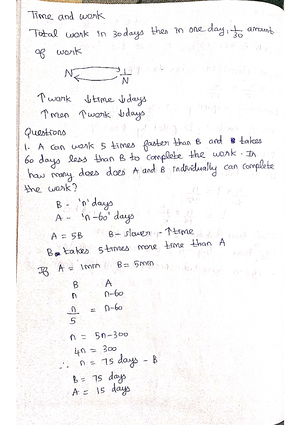 Time and work
Total work in 30 days then in one day, 1/30 amount
of work
N ⇌ 1/N
↑ work ↓time ↓days
↑ men ↑work ↓days
Questions
1. A can work 5 times faster than B and takes
60 days less than B to complete the work. In
how many does does A and B individually can complete
the work?
B - 'n' days
A - 'n-60' days
A = 5B B - slower - ↑time
B takes 5 times more time than A
If A = 1min B = 5min
B A
n n-60
n/5 = n-60
n = 5n-300
4n = 300
∴ n = 75 days - B
B = 75 days
A = 15 days